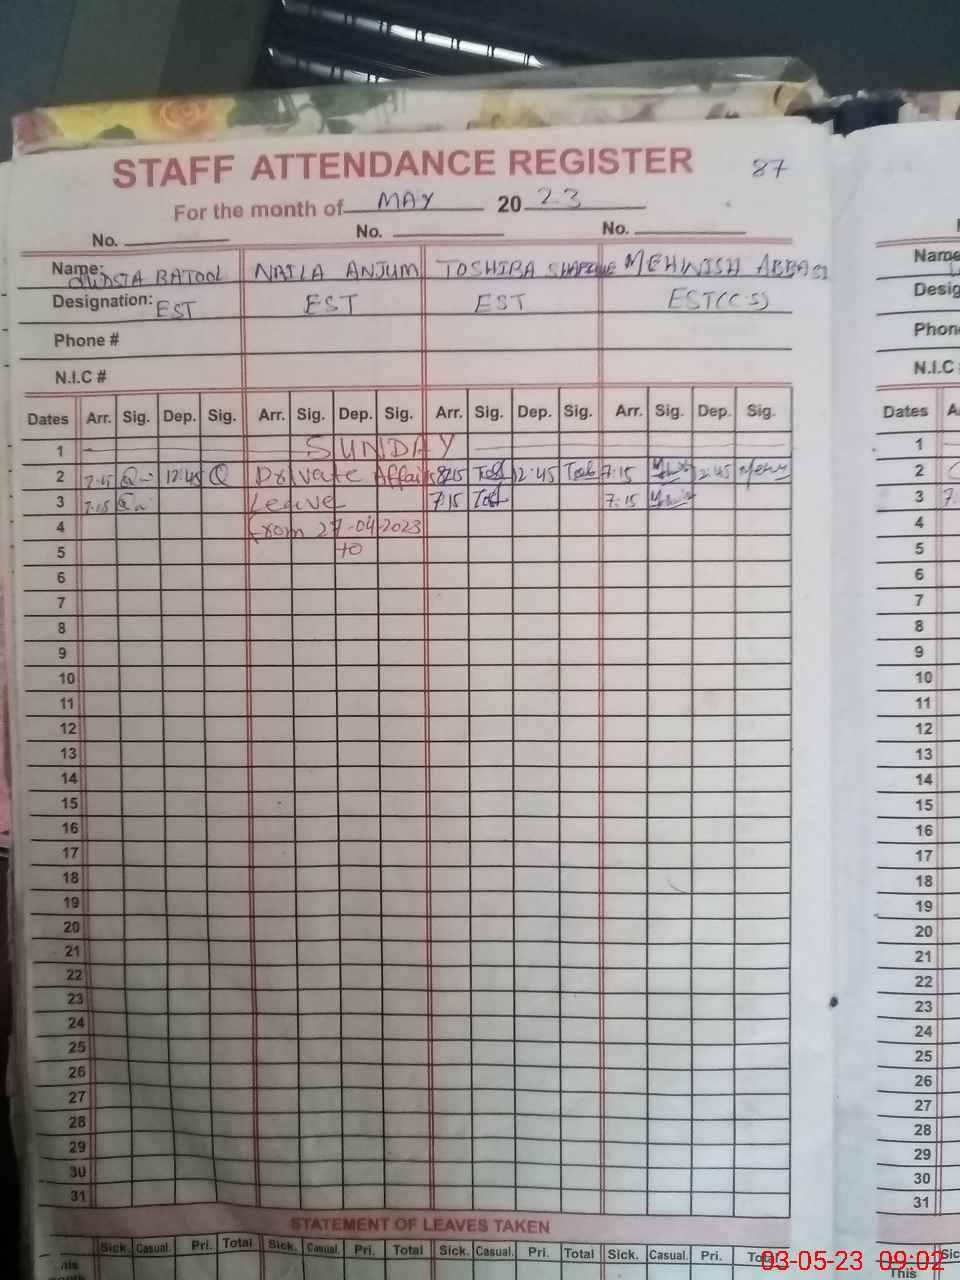 STAFF ATTENDANCE REGISTER 87
For the month of MAY 2023
No. No. No.
Name: BATOOL NAILA ANJUM TOSHIBA MEHWISH ABBASI Name
Designation: EST EST EST EST(C.S) Desig
Phone # Phon
N.I.C # N.I.C
Dates Arr. Sig. Dep. Sig. Arr. Sig. Dep. Sig. Arr. Sig. Dep. Sig. Arr. Sig. Dep. Sig. Dates A
1 SUNDAY 1
2 7:45 12:45 Private Affairs 12:45 7:15 2:45 2
3 7:15 Leave 7:15 7:15 3 7.
4 From 27-04-2023 4
5 to 5
6 6
7 7
8 8
9 9
10 10
11 11
12 12
13 13
14 14
15 15
16 16
17 17
18 18
19 19
20 20
21 21
22 22
23 23
24 24
25 25
26 26
27 27
28 28
29 29
30 30
31 31
STATEMENT OF LEAVES TAKEN
Sick. Casual. Pri. Total Sick. Casual. Pri. Total Sick. Casual. Pri. Total Sick. Casual. Pri. Sic
This
03-05-23 09:02